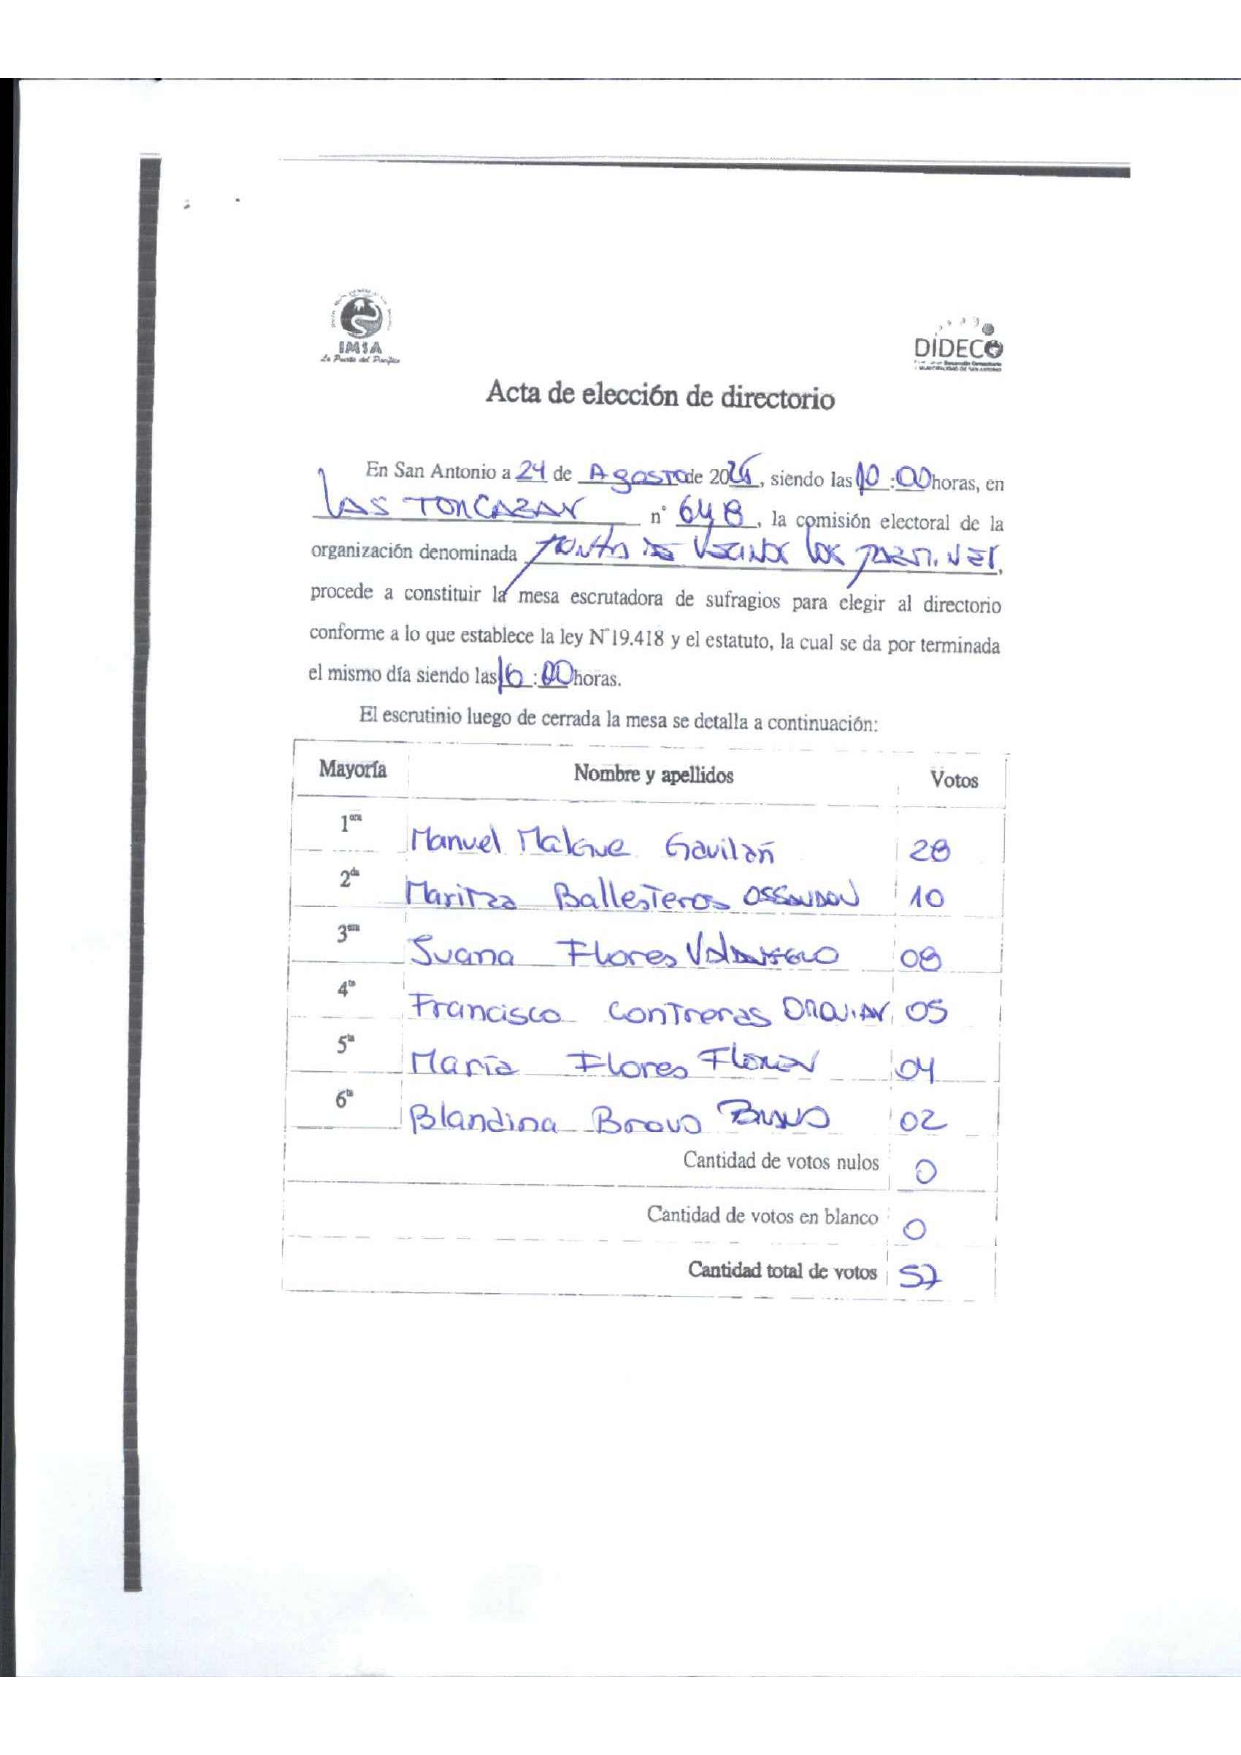 IMSA
La Puerta del Pacífico
DIDECO
MUNICIPALIDAD DE SAN ANTONIO
Acta de elección de directorio
En San Antonio a 24 de Agosto de 2024, siendo las 10:00 horas, en
LAS TORCAZAS n° 648, la comisión electoral de la
organización denominada JUNTA DE VECINOS LOS
procede a constituir la mesa escrutadora de sufragios para elegir al directorio
conforme a lo que establece la ley N°19.418 y el estatuto, la cual se da por terminada
el mismo día siendo las 16:00 horas.
El escrutinio luego de cerrada la mesa se detalla a continuación:
Mayoría Nombre y apellidos Votos
1era Manuel Malque Gavilán 28
2da Maritza Ballesteros OSSANDON 10
3era Juana Flores 08
4ta Francisco Contreras 05
5ta María Flores Flores 04
6ta Blandina Bravo BRAVO 02
Cantidad de votos nulos 0
Cantidad de votos en blanco 0
Cantidad total de votos 57